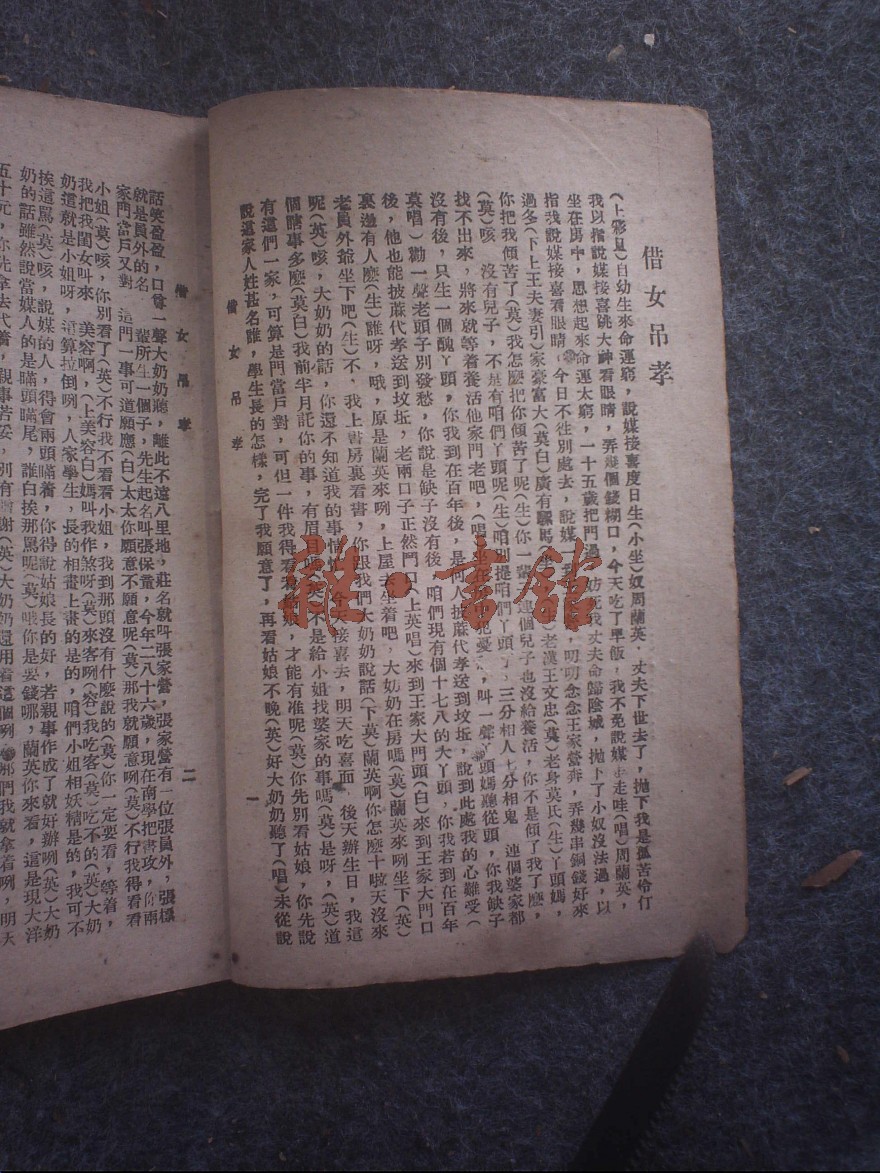 借女吊孝
(上彩旦)白幼生來命運窮,說媒接喜度日生(小坐)奴周蘭英,丈夫下世去了,拋下我是孤苦伶仃
我以指說媒接喜跳大神看眼睛,弄幾個錢糊口,今天吃了早飯,我不免說媒走走哇(唱)周蘭英,
坐在房中,思想起來命運太窮,一十五歲把門過,妨死我丈夫命歸陰城,拋下了小奴沒法過,以
指我說媒接喜看眼睛,今日不往別處去,說媒叨叨念念王家營奔,弄幾串銅錢好來
過冬(下上王夫妻引)家豪富大(莫白)廣有騾馬老漢王文忠(莫)老身莫氏(生)丫頭媽,
你把我傾苦了(莫)我怎麼把你傾苦了呢(生)你一輩連個兒子也沒給養活,你不是傾了我了麼,
(莫)咳,沒有兒子,不是有咱們丫頭呢(生)咱別提咱們丫頭了,三分相人七分相鬼,連個婆家都
找不出來,將來就等着養活他家門老吧,(唱)坐在犯憂,叫一聲丫頭媽聽從頭,你我缺子
沒有後,只生一個醜丫頭,你我到在百年後,是何人披蔴代孝送到坟坵,說到此處我的心難受(
莫唱)勸一聲老頭子別發愁,你說是缺子沒有後,咱們現有個十七八的大丫頭,你我若到在百年
後,他也能披蔴代孝送到坟坵,老兩口子正然門口(上英唱)來到王家大門頭(白)來到王家大門口
裏邊有人麼(生)誰呀,哦,原是蘭英來咧,上屋去坐着吧,大奶奶在房嗎(莫)蘭英來咧坐下(英)
老員外爺坐下吧(生)不,我上書房裏看書,你跟我們大奶奶說話(下莫)蘭英啊你怎麼十啦天沒來
呢(英)咳,大奶奶的話,你還不知道我的事情忙今天接喜去,明天吃喜面,後天辦生日,我這
個瞎事多麼(莫白)我前半月託你的事,有眉目嗎(英)不是給小姐找婆家的事嗎(莫)是呀,(英)道
有這們一家,可算是門當戶對,可但一件我得看看姑娘,才能有准呢(莫)你先別看姑娘,你先說
說這家人姓甚名誰,學生長的怎樣,完了我願意了,再看姑娘不晚(英)好大奶奶聽了(唱)未從說
借女吊孝
一
借女吊孝
二
話笑盈盈,口尊一聲大奶奶聽,離此不遠八里地,莊名就叫張家營,張家營有一位張員外,張
就是員外的名,輩所生一個子,先生起名叫張保童,今年二八十六歲,現在南學把書攻,你兩
家門當戶又對,這門一事可道願應(白)太太你願意不願意呢(莫)那我就願意咧(英)不行我得看看
小姐(莫)咳,你別看了(英)不行我不看看小姐,我到那頭沒有什麼說的(莫)你一定要看,等着,
我把我閨女叫來,美容啊,(上美容白)媽叫我作煞呀(莫)來客咧(容)我吃客(莫)吃不的(英)大奶
奶這就是小姐呀,這算拉倒咧,人家學生,長的相畫上畫的是的,咱們小姐相妖精是的,我可不
挨這罵(莫)咳,說媒的人,得會兩頭瞞着,你得說姑娘長的好,若親事作成了就好辦咧(英)大奶
奶的話雖然說當媒人的是瞞頭瞞尾,誰白挨那罵呢(莫)哦你是要錢哪,蘭英你來看,這是現大洋
五十元,你先拿去代着,親事若妥,別有謝(英)大奶奶還用着這個咧,那們我就拿着咧,明天